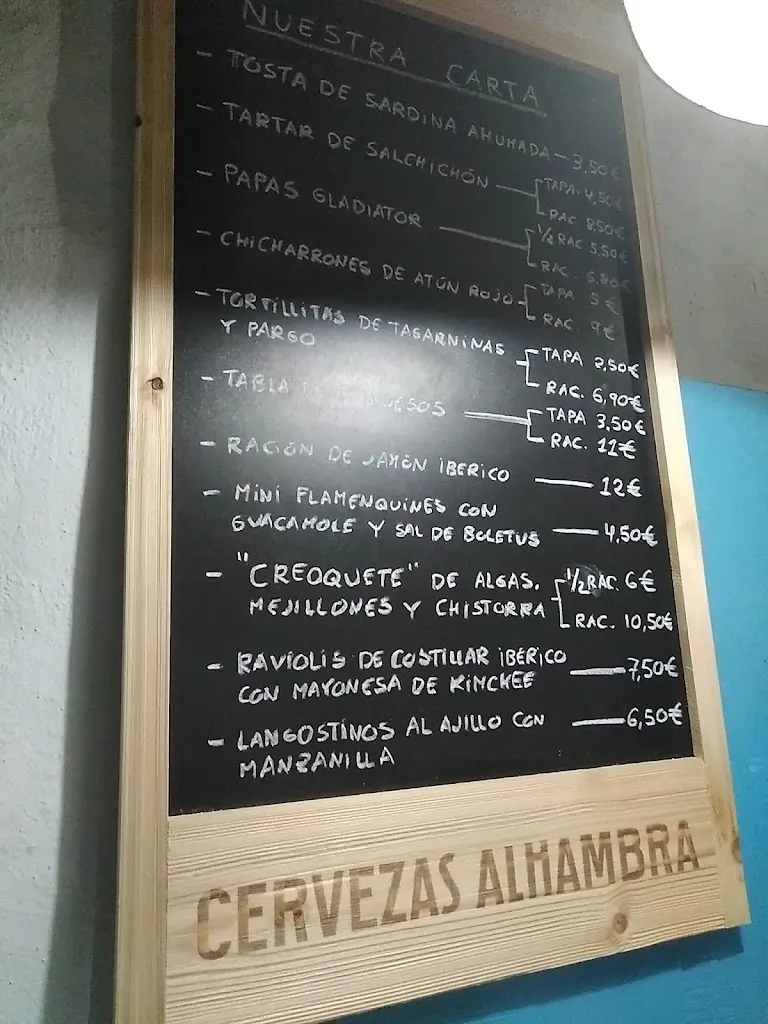 NUESTRA CARTA
- TOSTA DE SARDINA AHUMADA - 3,50€
- TARTAR DE SALCHICHÓN TAPA. 4,50€
RAC. 8,50€
- PAPAS GLADIATOR 1/2 RAC 5.50€
RAC. 6.80€
- CHICHARRONES DE ATÚN ROJO TAPA 5€
RAC. 9€
- TORTILLITAS DE TAGARNINAS TAPA 2,50€
Y PARGO RAC. 6,90€
- TABLA QUESOS TAPA 3.50€
RAC. 11€
- RACIÓN DE JAMÓN IBERICO — 12€
- MINI FLAMENQUINES CON
GUACAMOLE Y SAL DE BOLETUS — 4,50€
- "CREOQUETE" DE ALGAS, 1/2 RAC. 6€
MEJILLONES Y CHISTORRA RAC. 10,50€
- RAVIOLIS DE COSTILLAR IBÉRICO — 7,50€
CON MAYONESA DE KIMCHEE
- LANGOSTINOS AL AJILLO CON — 6,50€
MANZANILLA
CERVEZAS ALHAMBRA